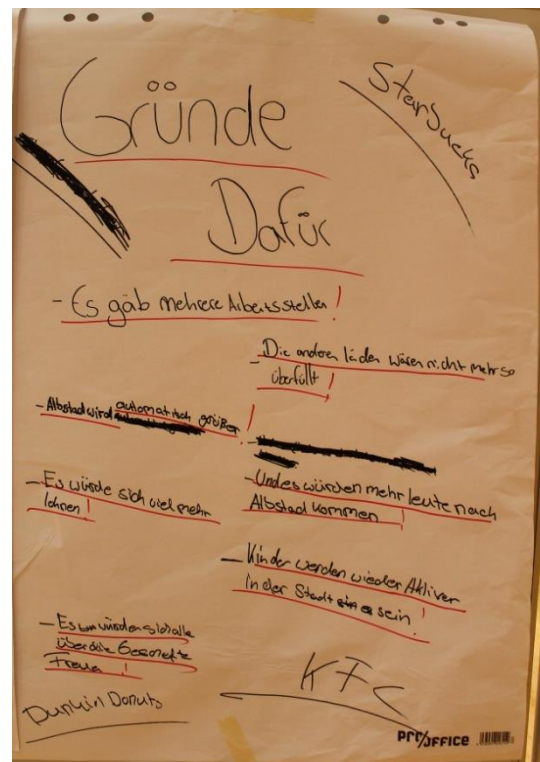 Starbucks
Gründe
Dafür
- Es gäb mehrere Arbeitsstellen!
- Die anderen läden wären nicht mehr so
überfüllt!
- Albstad wird automatisch größer!
- Es würde sich viel mehr
lohnen!
- Und es würden mehr leute nach
Albstad kommen!
- Kinder werden wieder Aktiver
in der Stadt sein!
- Es würden sich alle
über die Geschefte
Freuen!
Dunkin Donuts
KFC
PRO/OFFICE